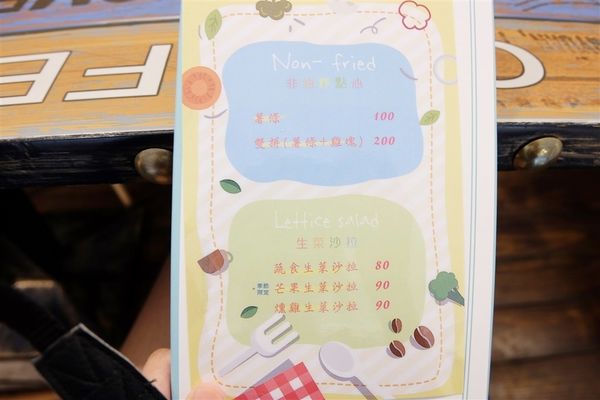 Non-fried
非油炸點心
薯條 100
雙拼(薯條+雞塊) 200
Lettice salad
生菜沙拉
蔬食生菜沙拉 80
•季節限定 芒果生菜沙拉 90
燻雞生菜沙拉 90